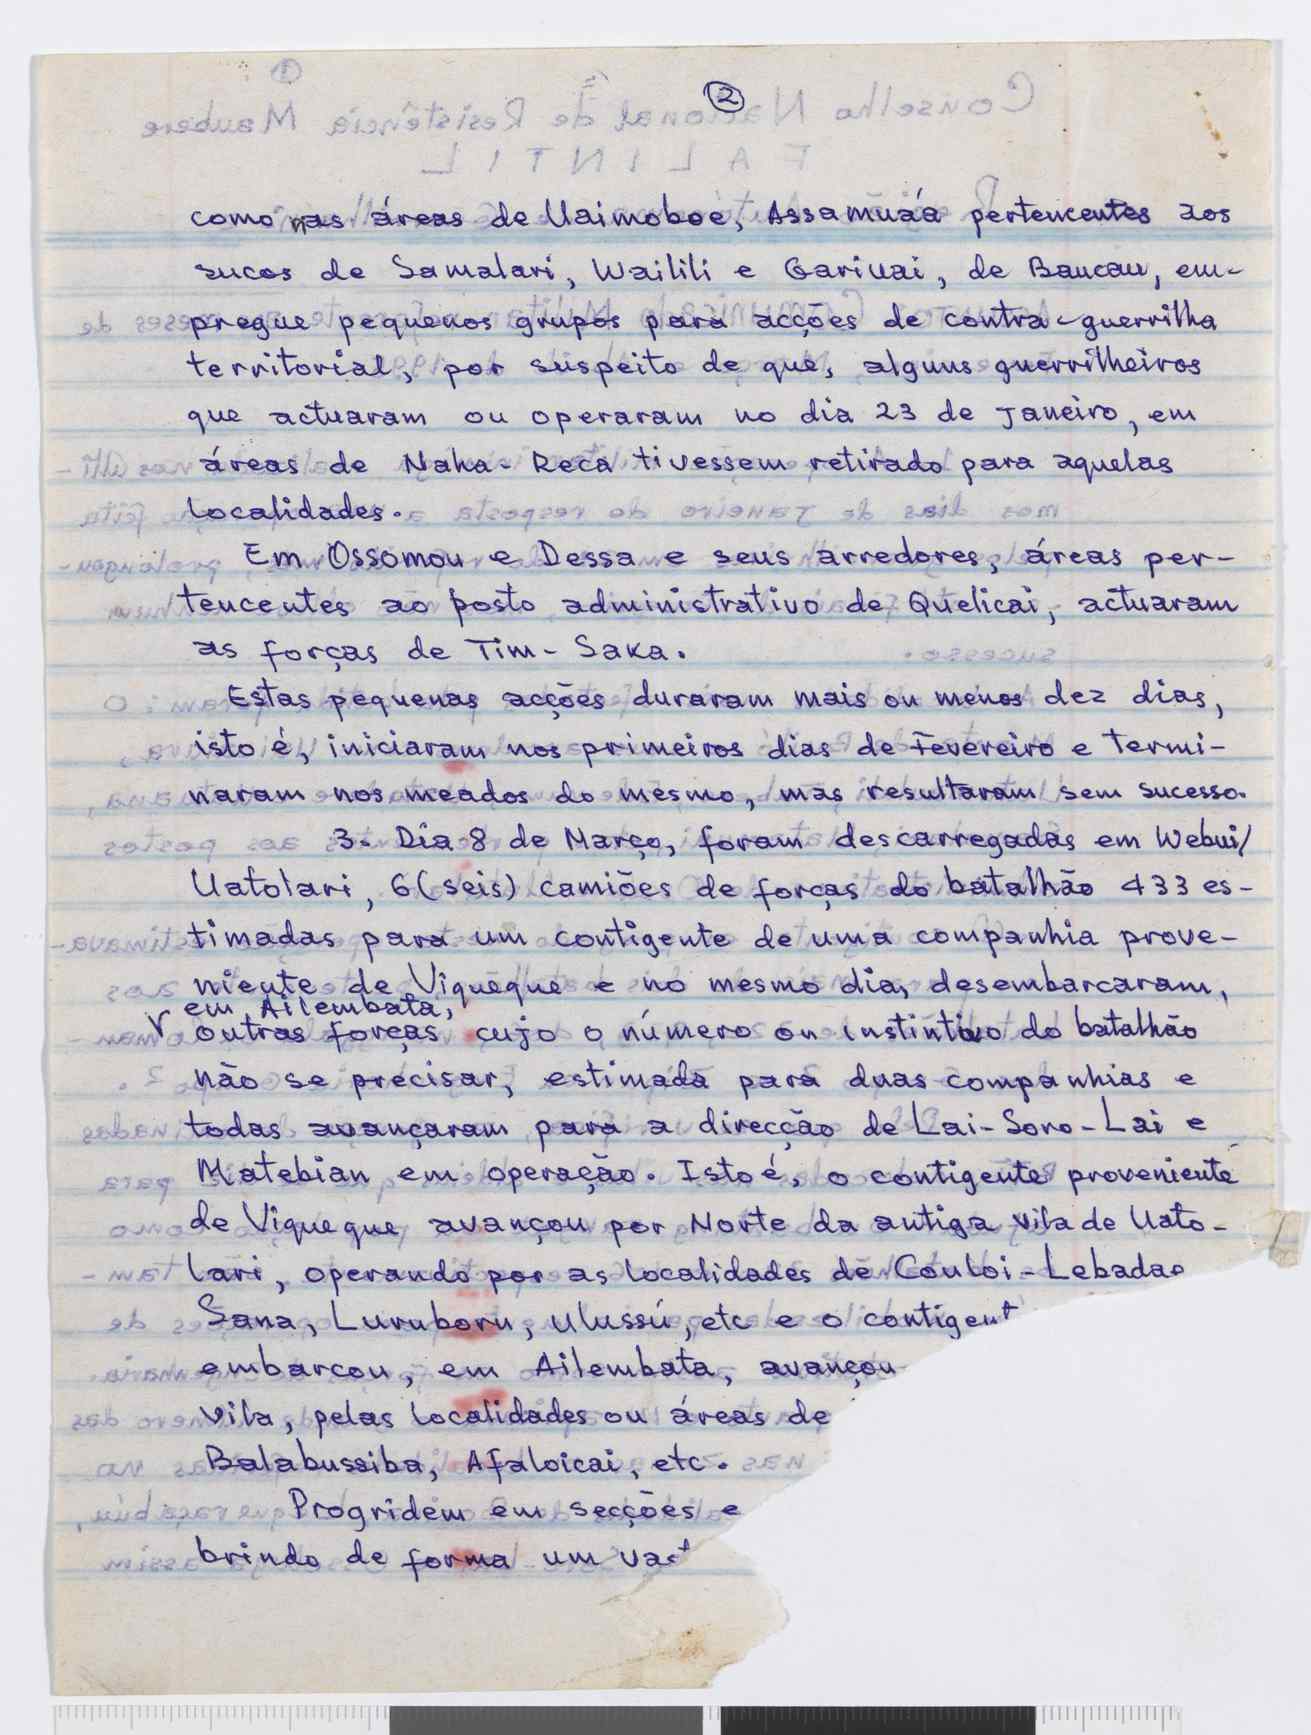 2
como nas áreas de Uaimoboe, Assamuáa pertencentes aos
sucos de Samalari, Wailili e Gariuai, de Baucau, em-
pregue pequenos grupos para acções de contra-guerrilha
territorial, por suspeito de que, alguns guerrilheiros
que actuaram ou operaram no dia 23 de Janeiro, em
áreas de Naha-Reca tivessem retirado para aquelas
localidades.
Em Ossomou e Dessa e seus arredores, áreas per-
tencentes ao posto administrativo de Quelicai, actuaram
as forças de Tim-Saka.
Estas pequenas acções duraram mais ou menos dez dias,
isto é, iniciaram nos primeiros dias de Fevereiro e termi-
naram nos meados do mesmo, mas resultaram sem sucesso.
3. Dia 8 de Março, foram descarregadas em Webui/
Uatolari, 6 (seis) camiões de forças do batalhão 433 es-
timadas para um contigente de uma companhia prove-
niente de Viqueque e no mesmo dia, desembarcaram,
em Ailembata,
outras forças cujo o número ou instintivo do batalhão
não se precisar, estimada para duas companhias e
todas avançaram para a direcção de Lai-Soro-Lai e
Matebian em operação. Isto é, o contigente proveniente
de Viqueque avançou por Norte da antiga vila de Uato-
lari, operando por as localidades de Couloi-Lebadae
Sana, Luruboru, Ulussú, etc e o contigent
embarcou, em Ailembata, avançou
vila, pelas localidades ou áreas de
Balabussiba, Afaloicai, etc.
Progridem em secções e
brindo de forma um vast